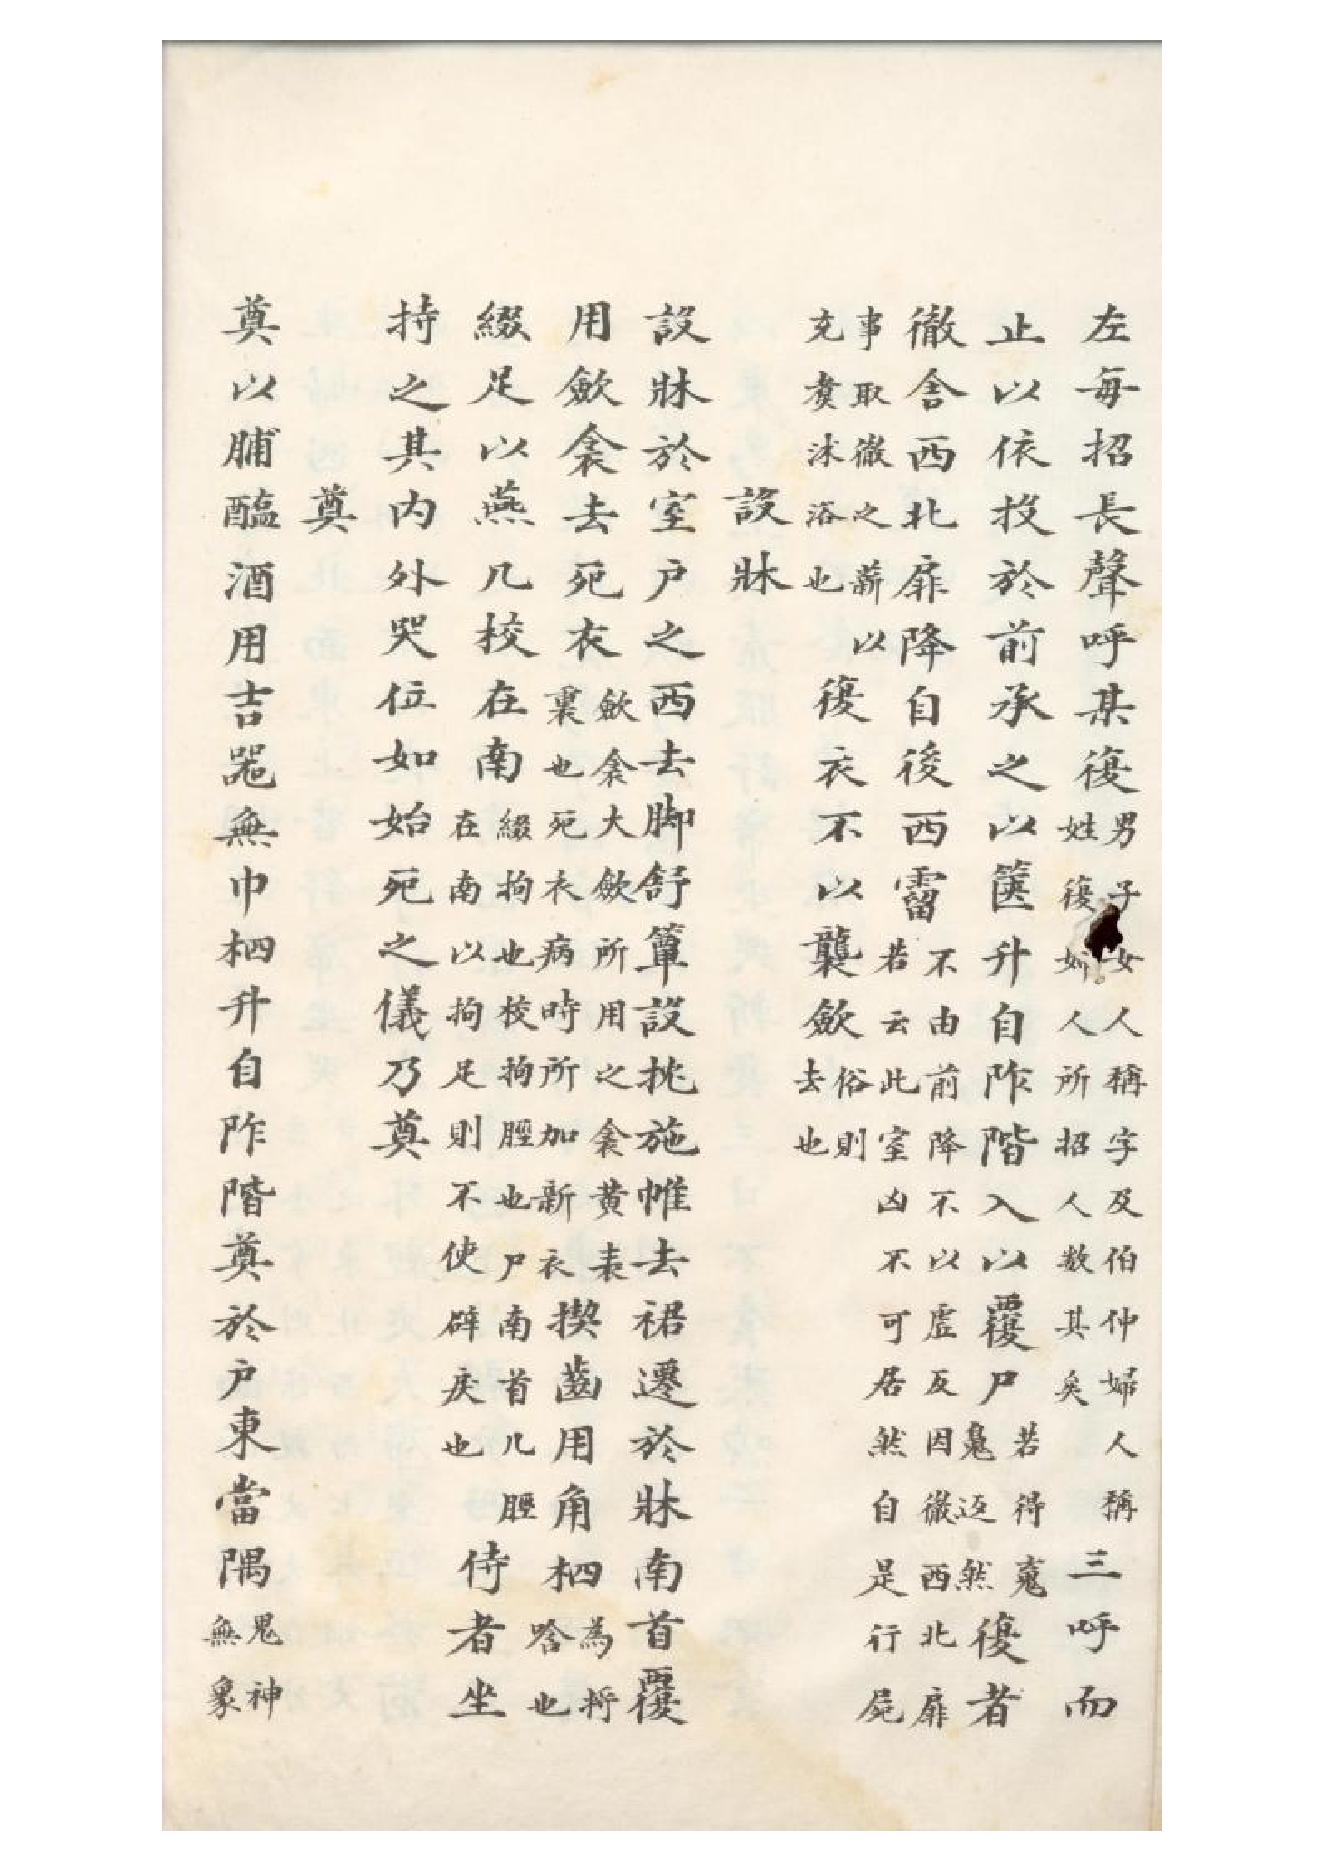 左每招長聲呼某復男子女人稱字及伯仲婦人稱姓復婦人所招人数其矣三呼而
止以依投於前承之以篋升自阼階入以覆尸若得䰟䰟返然復者
徹舍西北厞降自後西霤不由前降不以虛反因徹西北厞若云此室凶不可居然自是行屍
事取徹之薪以充煑沐浴也復衣不以襲斂俗則去也
設牀
設牀於室户之西去脚舒簟設挑施帷去裙遷於牀南首覆
用斂衾去死衣斂衾大斂所用之衾黄表裏也死衣病時所加新衣揳齒用角柶為將唅也
綴足以燕几校在南綴拘也校拘脛也尸南首几脛在南以拘足則不使辟戾也侍者坐
持之其内外哭位如始死之儀乃奠
奠
奠以脯醢酒用吉器無巾柶升自阼階奠於户東當隅鬼神無象